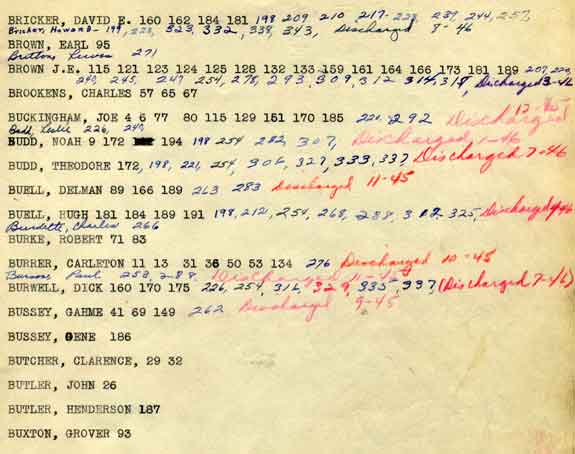 BRICKER, DAVID E. 160 162 184 181 198 209 210 217- 228, 239, 244, 257,
Bricker, Howard - 199, 223, 323, 332, 338, 343, Discharged 8-46
BROWN, EARL 95
271
BROWN J.E. 115 121 123 124 125 128 132 133 159 161 164 166 173 181 189 207, 220,
240, 245, 247 254, 278, 293 309, 312 314, 318, Discharged 3-46
BROCKENS, CHARLES 57 65 67
12-45
BUCKINGHAM, JOE 4 6 77 80 115 129 151 170 185 220, 292 Discharged
Leslie 226, 240
BUDD, NOAH 9 172 194 198 254 282, 307, Discharged, 1-46
BUDD, THEODORE 172, 198, 221, 254, 306, 327, 333, 337, Discharged 7-46
BUELL, DELMAN 89 166 189 263 283 Discharged 11-45
BUELL, HUGH 181 184 189 191 198, 212, 254, 268, 288, 302, 325, Discharged
Burdett, Charles 266
BURKE, ROBERT 71 83
BURRER, CARLETON 11 13 31 36 50 53 134 276 Discharged 10-45
Paul 258, 288, Discharged 11-45
BURWELL, DICK 160 170 175 226, 254, 316, 329, 335, 337, (Discharged 7-46)
BUSSEY, GAHME 41 69 149 262 Discharged 9-45
BUSSEY, GENE 186
BUTCHER, CLARENCE, 29 32
BUTLER, JOHN 26
BUTLER, HENDERSON 187
BUXTON, GROVER 93